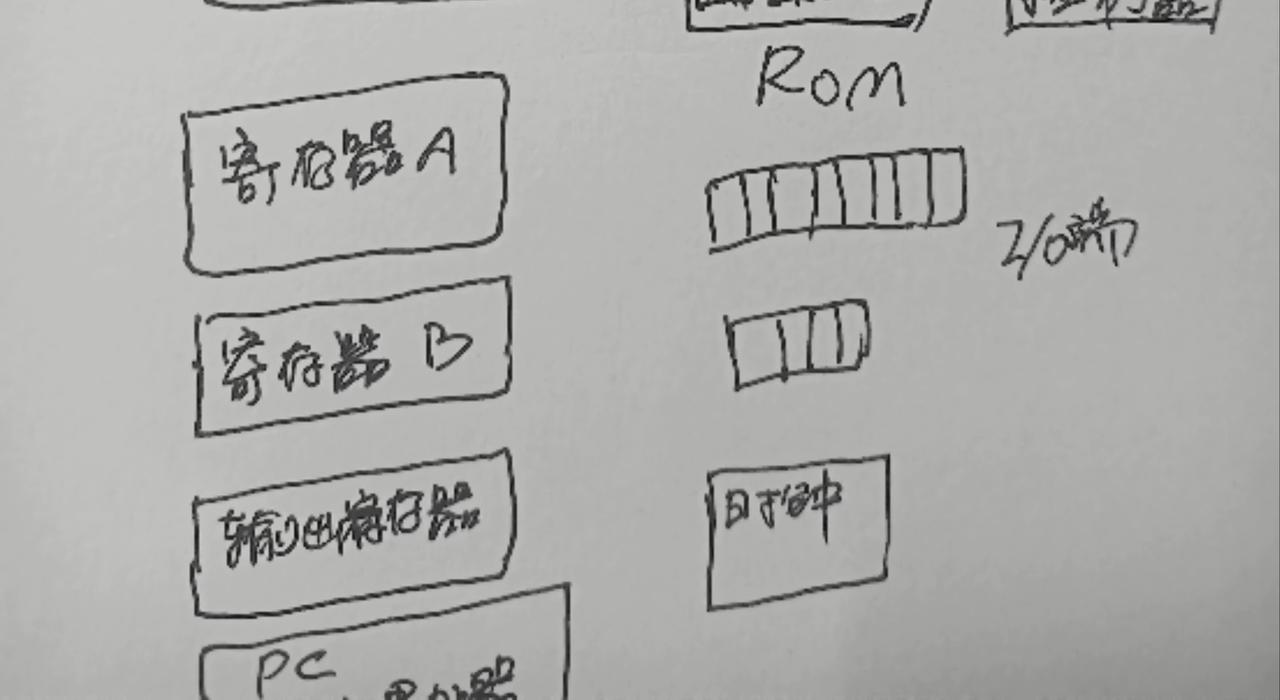 ROM
寄存器A
I/O端
寄存器 B
输出寄存器
时钟
PC